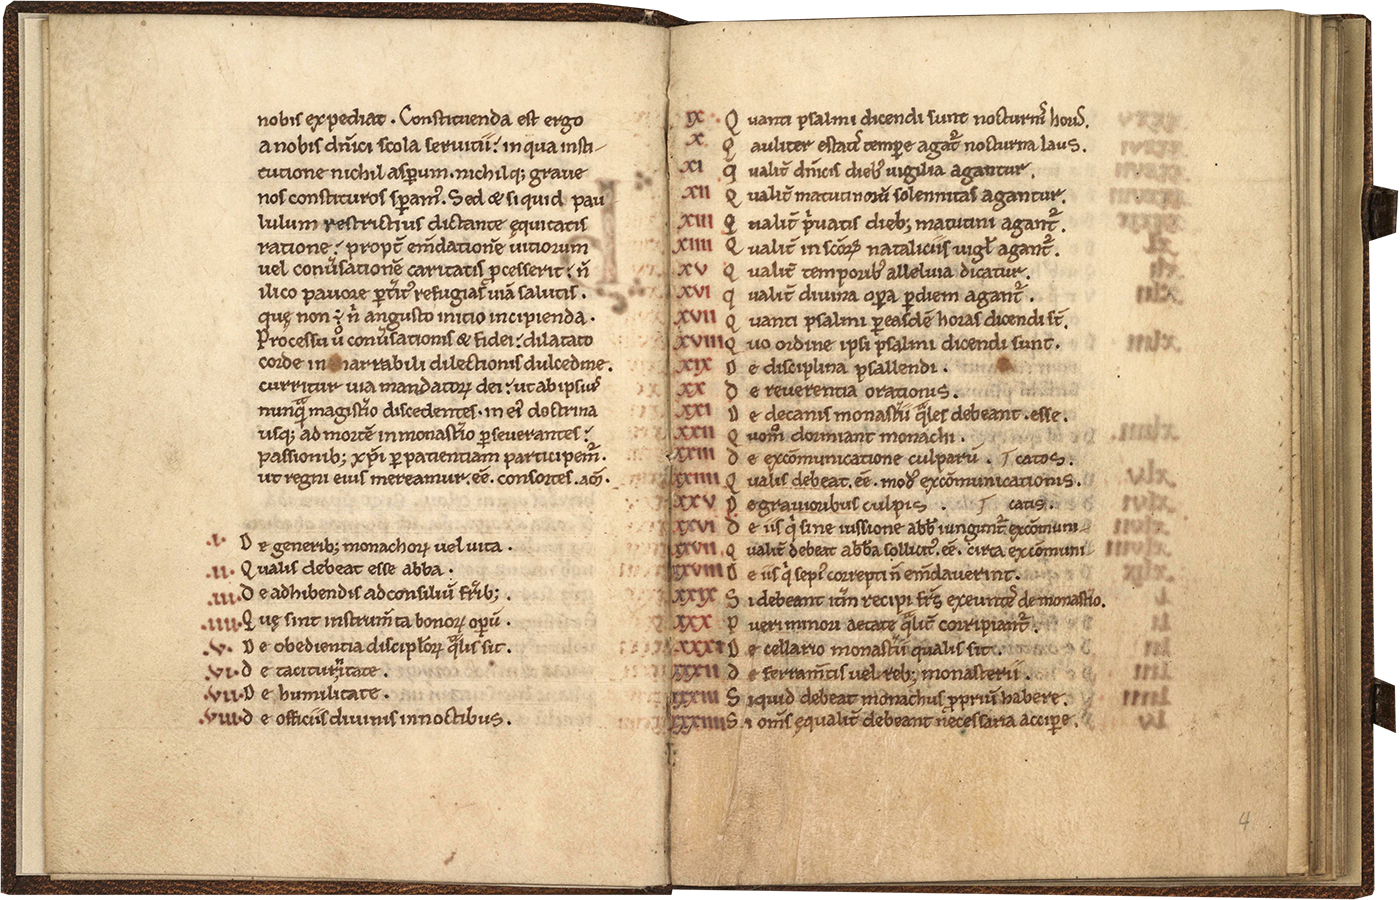 nobis expediat. Constituenda est ergo
a nobis dn̄ici scola servitii: in qua insti-
tutione nichil asp̱um. nichilq; grave
nos constituros sp̱am᷒. Sed & si quid pau
lulum restrictius dictante ęquitatis
ratione: propt̄ em̄datione᷒ vitiorum
vel conv̄satione᷒ caritatis p̱cesserit: n̄
ilico pavore p̱t̄it᷒ refugias viā salutis.
quę non ÷ n̄ angusto initio incipienda.
Processu v̊ conv̄sationis & fidei: dilatato
corde inenarrabili dilectionis dulcedine.
curritur via mandatoꝝ dei: ut ab ipsius
nunq̄ magist̄io discedentes. in ei᷒ doctrina
usq; ad mortē in monast̄io p̱severantes:
passionib; xp̄i p̱ patientiam participem᷒.
ut regni eius mereamur. ēē. consortes. am̄.
.I. De generib; monachoꝝ vel vita.
.II. Qualis debeat esse abba.
.III. De adhibendis ad consiliū fr̄ib;.
.IIII. Quę sint instrum̄ta bonoꝝ opeꝝū.
.V. De obedientia discipl̄oꝝ q̄lis sit.
.VI. de taciturnitate.
.VII. De humilitate.
.VIII. de officiis divinis in noctibus.
IX. Quanti psalmi dicendi sunt nocturnis horis.
X Qualiter estatis temp̱e agat̄ nocturna laus.
XI qualit̄ dn̄icis dieb; vigilia agantur.
XII Qualit̄ matutinorū solennitas agantur.
XIII Qualit̄ p̄vatis dieb; matutini agant̄.
XIIII Qualit̄ in sc̄oꝝ nataliciis vigil̄ agant̄.
XV Qualit̄ temporib; alleluia dicatur.
XVI qualit̄ divina op̱a p̱ diem agant̄.
XVII Quanti psalmi p̱ easdē horas dicendi st̄.
XVIII Quo ordine ipsi psalmi dicendi sunt.
XIX De disciplina psallendi.
XX de reverentia orationis.
XXI De decanis monast̄ii q̄les debeant. esse.
XXII Quom̊ dormiant monachi.
XXIII de excōmunicatione culparū. catos.
XXIIII Qualis debeat. ēē. mod᷒ excōmunicationis.
XXV De gravioribus culpis. catis.
XXVI de iis q̄ sine iussione abb̄ iungunt᷒ excōmuni-
XXVII Qualit̄ debeat abb̄a sollicit᷒. ēē. circa excōmuni
XXVIII De iis q̄ sepi᷒ correpti n̄ em̄daverint.
XXIX Si debeant it̄m recipi fr̄s exeuntes de monast̄io.
XXX Pueri minori aetate q̄lit̄ corripiant̄.
XXXI De cellario monast̄ii qualis sit.
XXXII de ferram̄tis vel reb; monasterii.
XXXIII Si quid debeat monachus p̱priū habere.
XXXIIII Si om̄s ęqualit̄ debeant necessaria accip̱e.
4